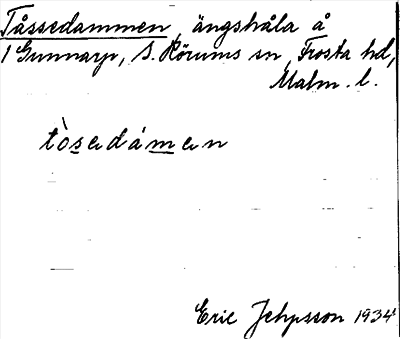 Tåssedammen, ängshåla å
1 Gunnarp, S. Rörums sn, Frosta hd,
Malm. l.
tòsedámen
Eric Jehpsson 1934